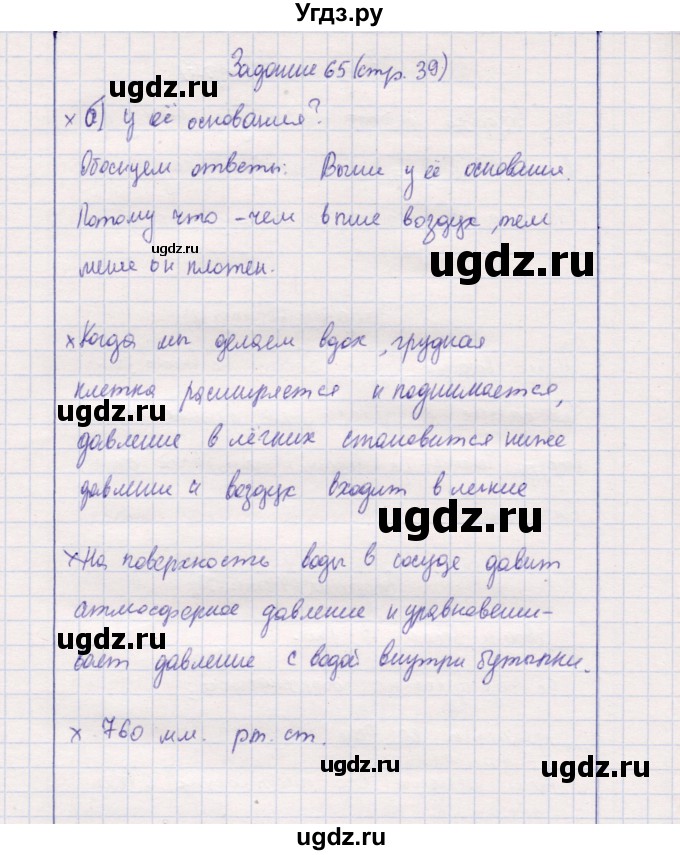 Угдз.ру
Задание 65 (стр. 39)
ugdz.ru
х б) у её основания?
Обоснуем ответы: Выше у её основания.
Потому что - чем выше воздух, тем
ugdz.ru
ugdz.ru
менее он плотен.
х Когда мы делаем вдох, грудная
клетка расширяется и поднимается,
ugdz.ru
давление в лёгких становится ниже
давление и воздух входит в легкие
ugdz.ru
х На поверхность воды в сосуде давит
атмосферное давление и уравновеши-
ugdz.ru
вает давление с водой внутри бутылки.
х 760 мм. рт. ст.
ugdz.ru
ugdz.ru
ugdz.ru